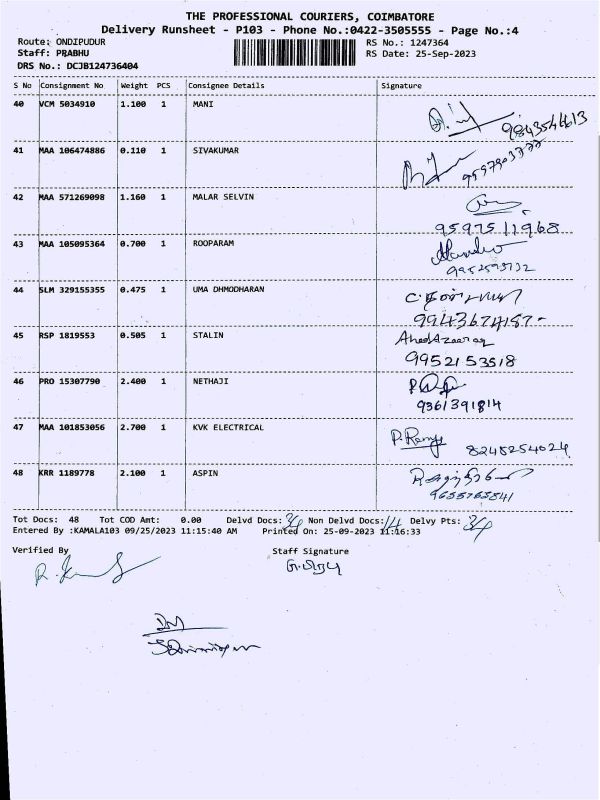 THE PROFESSIONAL COURIERS, COIMBATORE
Delivery Runsheet - P103 - Phone No.:0422-3505555 - Page No.:4
Route: ONDIPUDUR RS No.: 1247364
Staff: PRABHU RS Date: 25-Sep-2023
DRS No.: DCJB124736404
S No Consignment No Weight PCS Consignee Details Signature
40 VCM 5034910 1.100 1 MANI
9843544613
41 MAA 106474886 0.110 1 SIVAKUMAR
42 MAA 571269098 1.160 1 MALAR SELVIN
9597511968
43 MAA 105095364 0.700 1 ROOPARAM
44 SLM 329155355 0.475 1 UMA DHMODHARAN
9943674187-
45 RSP 1819553 0.505 1 STALIN
9952153518
46 PRO 15307790 2.400 1 NETHAJI
9361391814
47 MAA 101853056 2.700 1 KVK ELECTRICAL
8248254024
48 KRR 1189778 2.100 1 ASPIN
9655765841
Tot Docs: 48 Tot COD Amt: 0.00 Delvd Docs: 34 Non Delvd Docs: 14 Delvy Pts: 34
Entered By :KAMALA103 09/25/2023 11:15:40 AM Printed On: 25-09-2023 11:16:33
Verified By Staff Signature